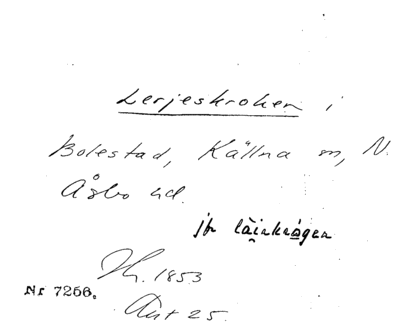 Lerjeskroken i
Bolestad, Källna sn, N.
Åsbo hd.
jfr
1853
Nr 7256.
Akt 25.